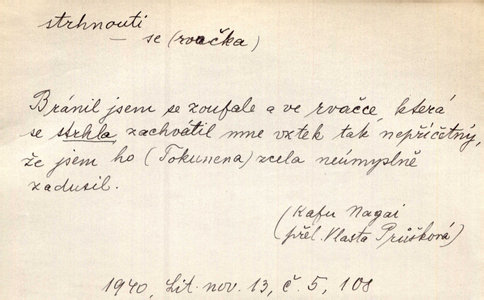 strhnouti
se (rvačka)
Bránil jsem se zoufale a ve rvačce, která
se strhla zachvátil mne vztek tak nepříčetný,
že jsem ho (Tokunena) zcela neúmyslně
zadusil.
(Kafu Nagai
přel. Vlasta Průšková)
1940, Lit. nov. 13, č. 5, 108